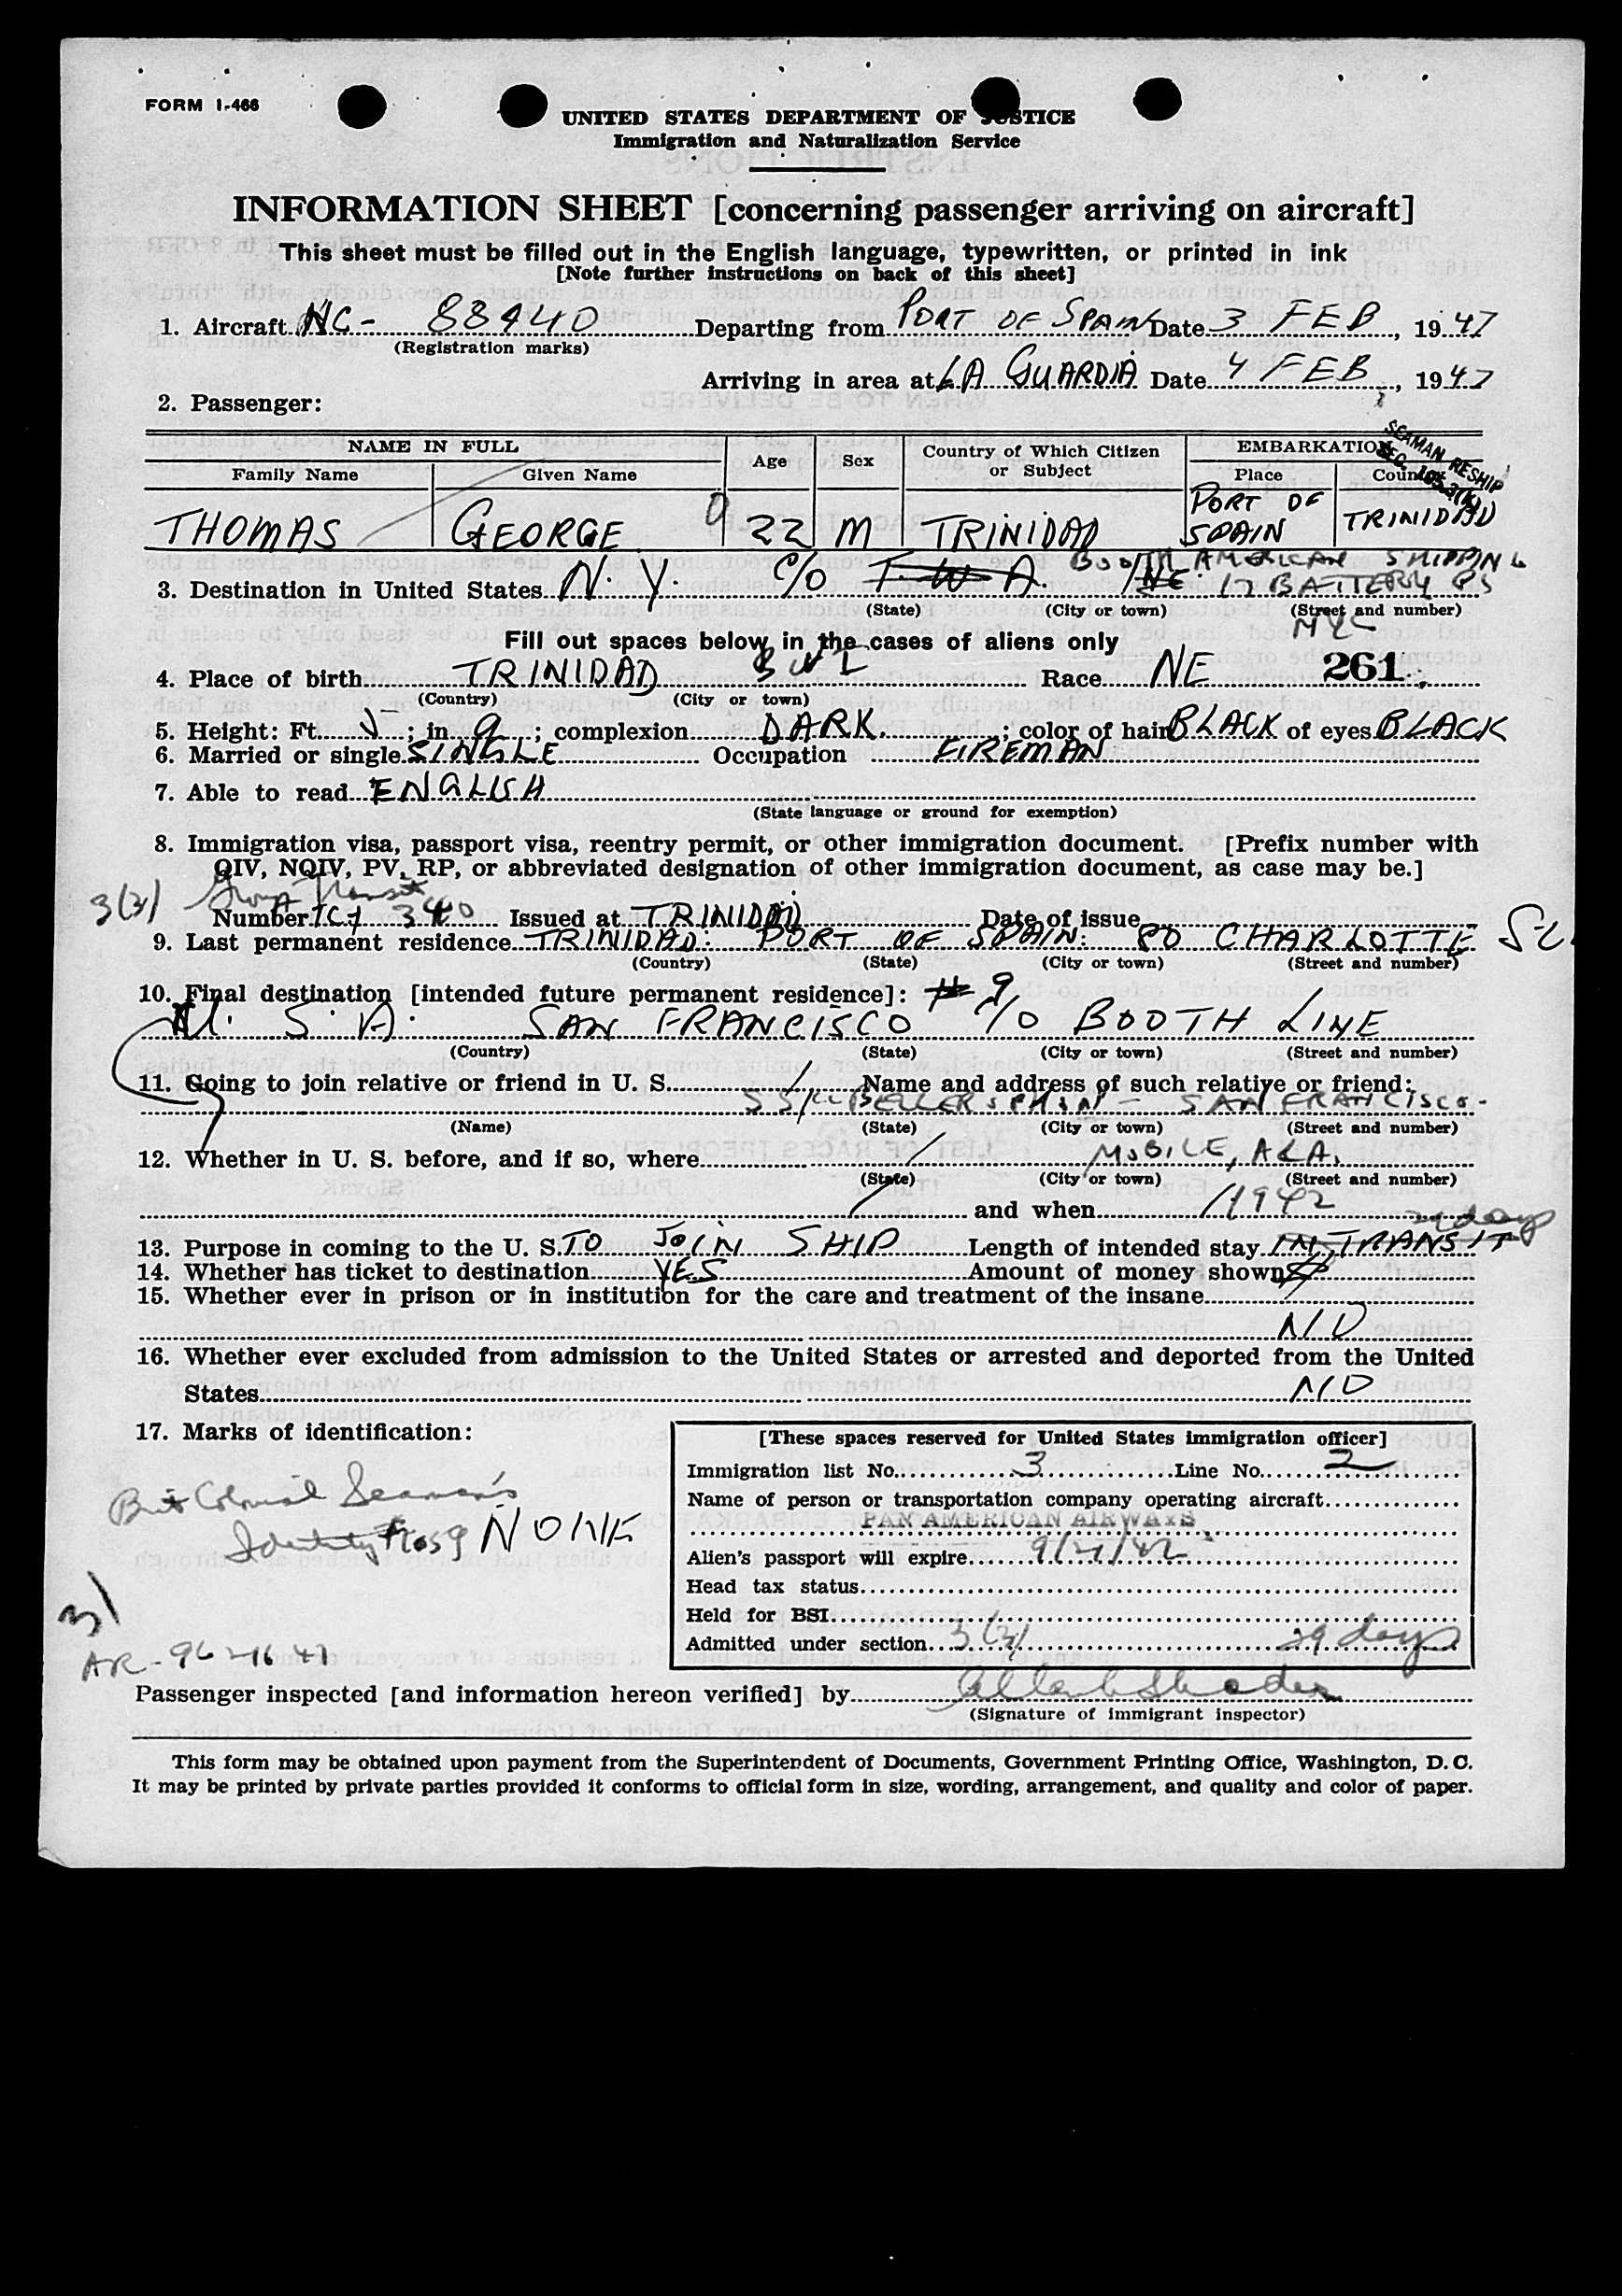 FORM I-466
UNITED STATES DEPARTMENT OF JUSTICE
Immigration and Naturalization Service
INFORMATION SHEET [concerning passenger arriving on aircraft]
This sheet must be filled out in the English language, typewritten, or printed in ink
[Note further instructions on back of this sheet]
1. Aircraft NC- 88940 Departing from PORT OF SPAIN Date 3 FEB, 1947
(Registration marks)
Arriving in area at LA GUARDIA Date 4 FEB, 1947
2. Passenger:
SEAMAN RESHIP
NAME IN FULL Age Sex Country of Which Citizen or Subject EMBARKATION
Family Name Given Name Place Country
THOMAS GEORGE 22 M TRINIDAD PORT OF SPAIN TRINIDAD
BOOTH AMERICAN SHIPPING
3. Destination in United States N. Y. C/O T. W. A. INC. 17 BATTERY PS
(State) (City or town) (Street and number)
NYC
Fill out spaces below in the cases of aliens only
4. Place of birth TRINIDAD BWI Race NE 261
(Country) (City or town)
5. Height: Ft. 5; in 9; complexion DARK; color of hair BLACK of eyes BLACK
6. Married or single SINGLE Occupation FIREMAN
7. Able to read ENGLISH
(State language or ground for exemption)
8. Immigration visa, passport visa, reentry permit, or other immigration document. [Prefix number with
QIV, NQIV, PV, RP, or abbreviated designation of other immigration document, as case may be.]
3(3) Group Transit
Number 340 Issued at TRINIDAD Date of issue
9. Last permanent residence TRINIDAD: PORT OF SPAIN: 80 CHARLOTTE St.
(Country) (State) (City or town) (Street and number)
10. Final destination [intended future permanent residence]: # 9
U. S. A. SAN FRANCISCO C/O BOOTH LINE
(Country) (State) (City or town) (Street and number)
11. Going to join relative or friend in U. S. Name and address of such relative or friend:
SS BELLEROPHON - SAN FRANCISCO-
(Name) (State) (City or town) (Street and number)
12. Whether in U. S. before, and if so, where MOBILE, ALA.
(State) (City or town) (Street and number)
and when 1942
29 days
13. Purpose in coming to the U. S. TO JOIN SHIP Length of intended stay IN TRANSIT
14. Whether has ticket to destination YES Amount of money shown
15. Whether ever in prison or in institution for the care and treatment of the insane
NO
16. Whether ever excluded from admission to the United States or arrested and deported from the United
States NO
17. Marks of identification:
Brit Colonial Seaman's
Identity NONE
31
[These spaces reserved for United States immigration officer]
Immigration list No. 3 Line No. 2
Name of person or transportation company operating aircraft
PAN AMERICAN AIRWAYS
Alien's passport will expire
Head tax status
Held for BSI
Admitted under section 3(3) 29 days
Passenger inspected [and information hereon verified] by
(Signature of immigrant inspector)
This form may be obtained upon payment from the Superintendent of Documents, Government Printing Office, Washington, D. C.
It may be printed by private parties provided it conforms to official form in size, wording, arrangement, and quality and color of paper.